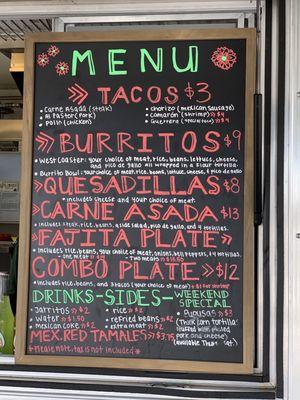 MENU
TACOS $3
• Carne Asada (steak) • Chorizo (Mexican Sausage)
• Al Pastor (Pork) • Camarón (shrimp) $4
• Pollo (chicken)
BURRITOS $9
West Coaster: your choice of meat, rice, beans, lettuce, cheese,
and pico de gallo all wrapped in a flour tortilla
Burrito Bowl: your choice of meat, rice, beans, lettuce, cheese, & pico de gallo
QUESADILLAS $8
• includes cheese and your choice of meat.
CARNE ASADA $13
includes steak, rice, beans, a side salad, pico de gallo, and 4 tortillas.
FAJITA PLATE
includes rice, beans, your choice of meat, onions, bell peppers, & 4 tortillas.
one meat Two meats
COMBO PLATE $12
includes rice, beans, and 2 tacos (your choice of meat) + $1 for shrimp
DRINKS-SIDES- WEEKEND
SPECIAL
• Jarritos $2 • rice $2 • Pupusas $3
• Water $1.50 • refried beans $2 (Thick corn tortilla
• Mexican Coke $2 • extra meat $2 stuffed with pulled
pork and cheese)
MEX. RED TAMALES $3.75
* Please note, tax is not included *